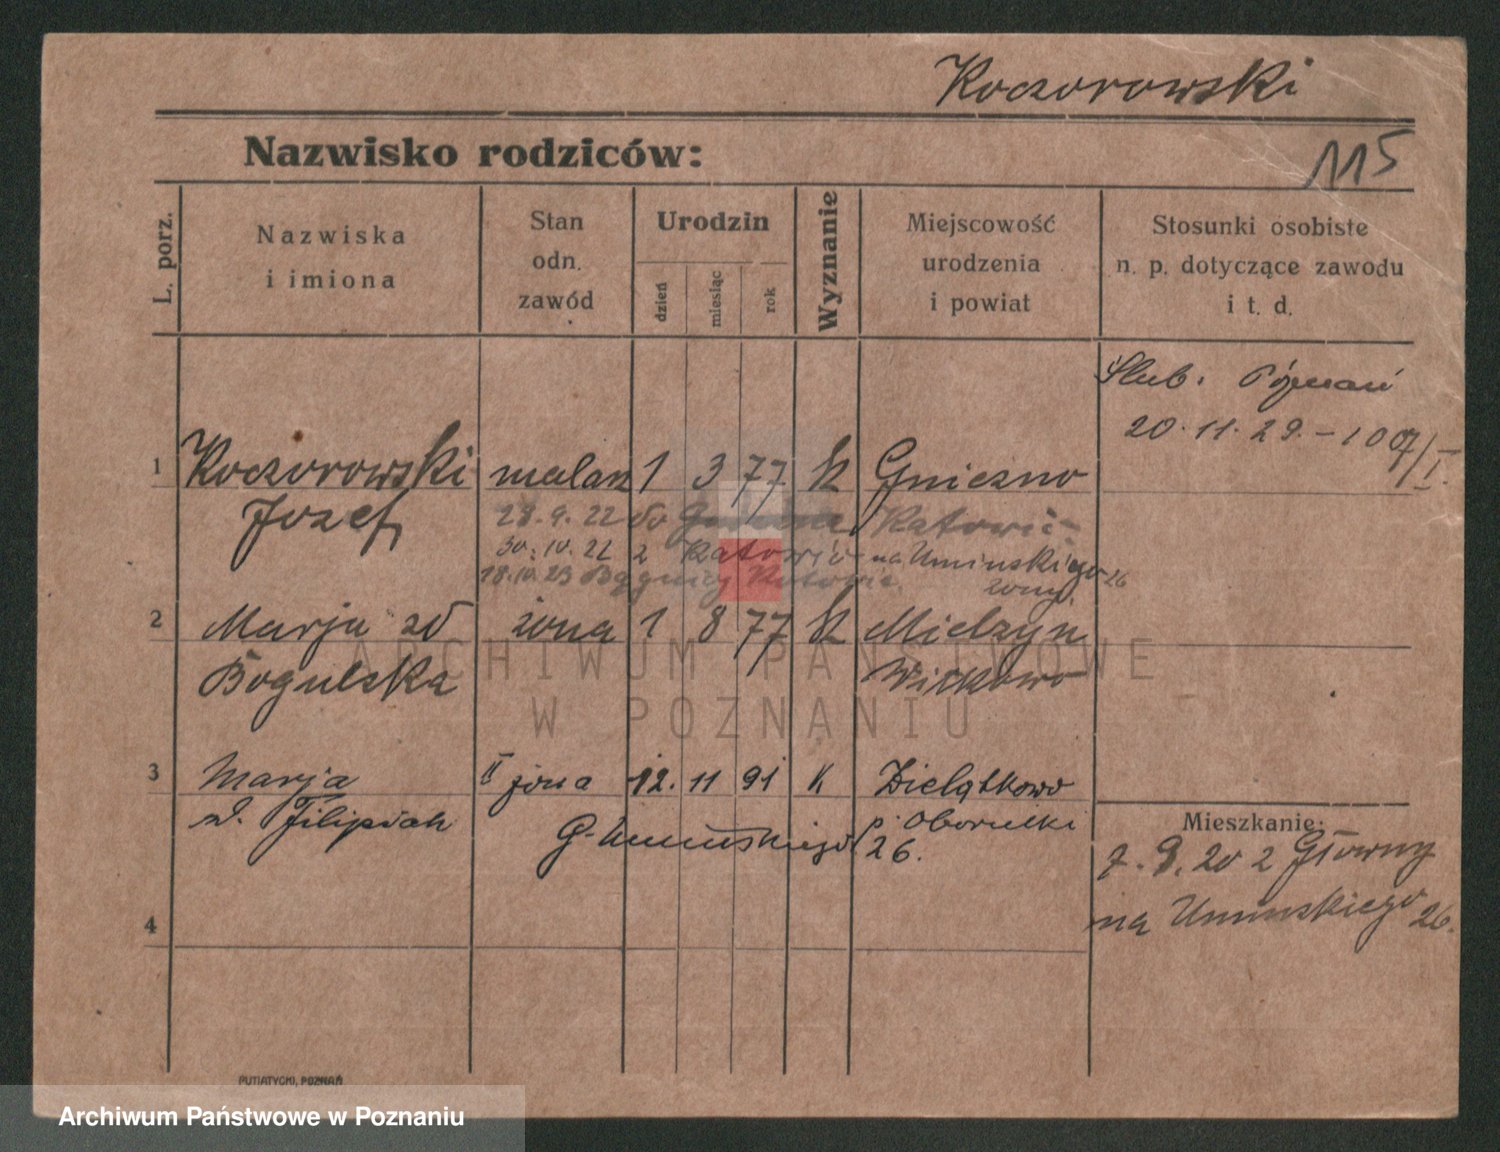 Koczorowski
Nazwisko rodziców:
115
L. porz.
Nazwiska
i imiona
Stan
odn.
zawód
Urodzin
dzień
miesiąc
rok
Wyznanie
Miejscowość
urodzenia
i powiat
Stosunki osobiste
n. p. dotyczące zawodu
i t. d.
Ślub. Poznań
20.11.29. – 1007/I.
1 Koczorowski malarz 1 3 77 k Gniezno
Józef
28.9.22 do Katowic
30.10.22 z Katowic na Umińskiego 26
żony.
18.10.23 Katowic.
2 Marja zd żona 1 8 77 k Mielżyn
Bogulska Witkowo
ARCHIWUM PAŃSTWOWE
W POZNANIU
3 Marja II żona 12. 11 91 k Zielątkowo
z d. Filipiak p. Obornicki
G. Umińskiego 26.
Mieszkanie:
7.9.20 z Głowny
na Umińskiego 26.
4
PUTIATYCKI, POZNAŃ
Archiwum Państwowe w Poznaniu